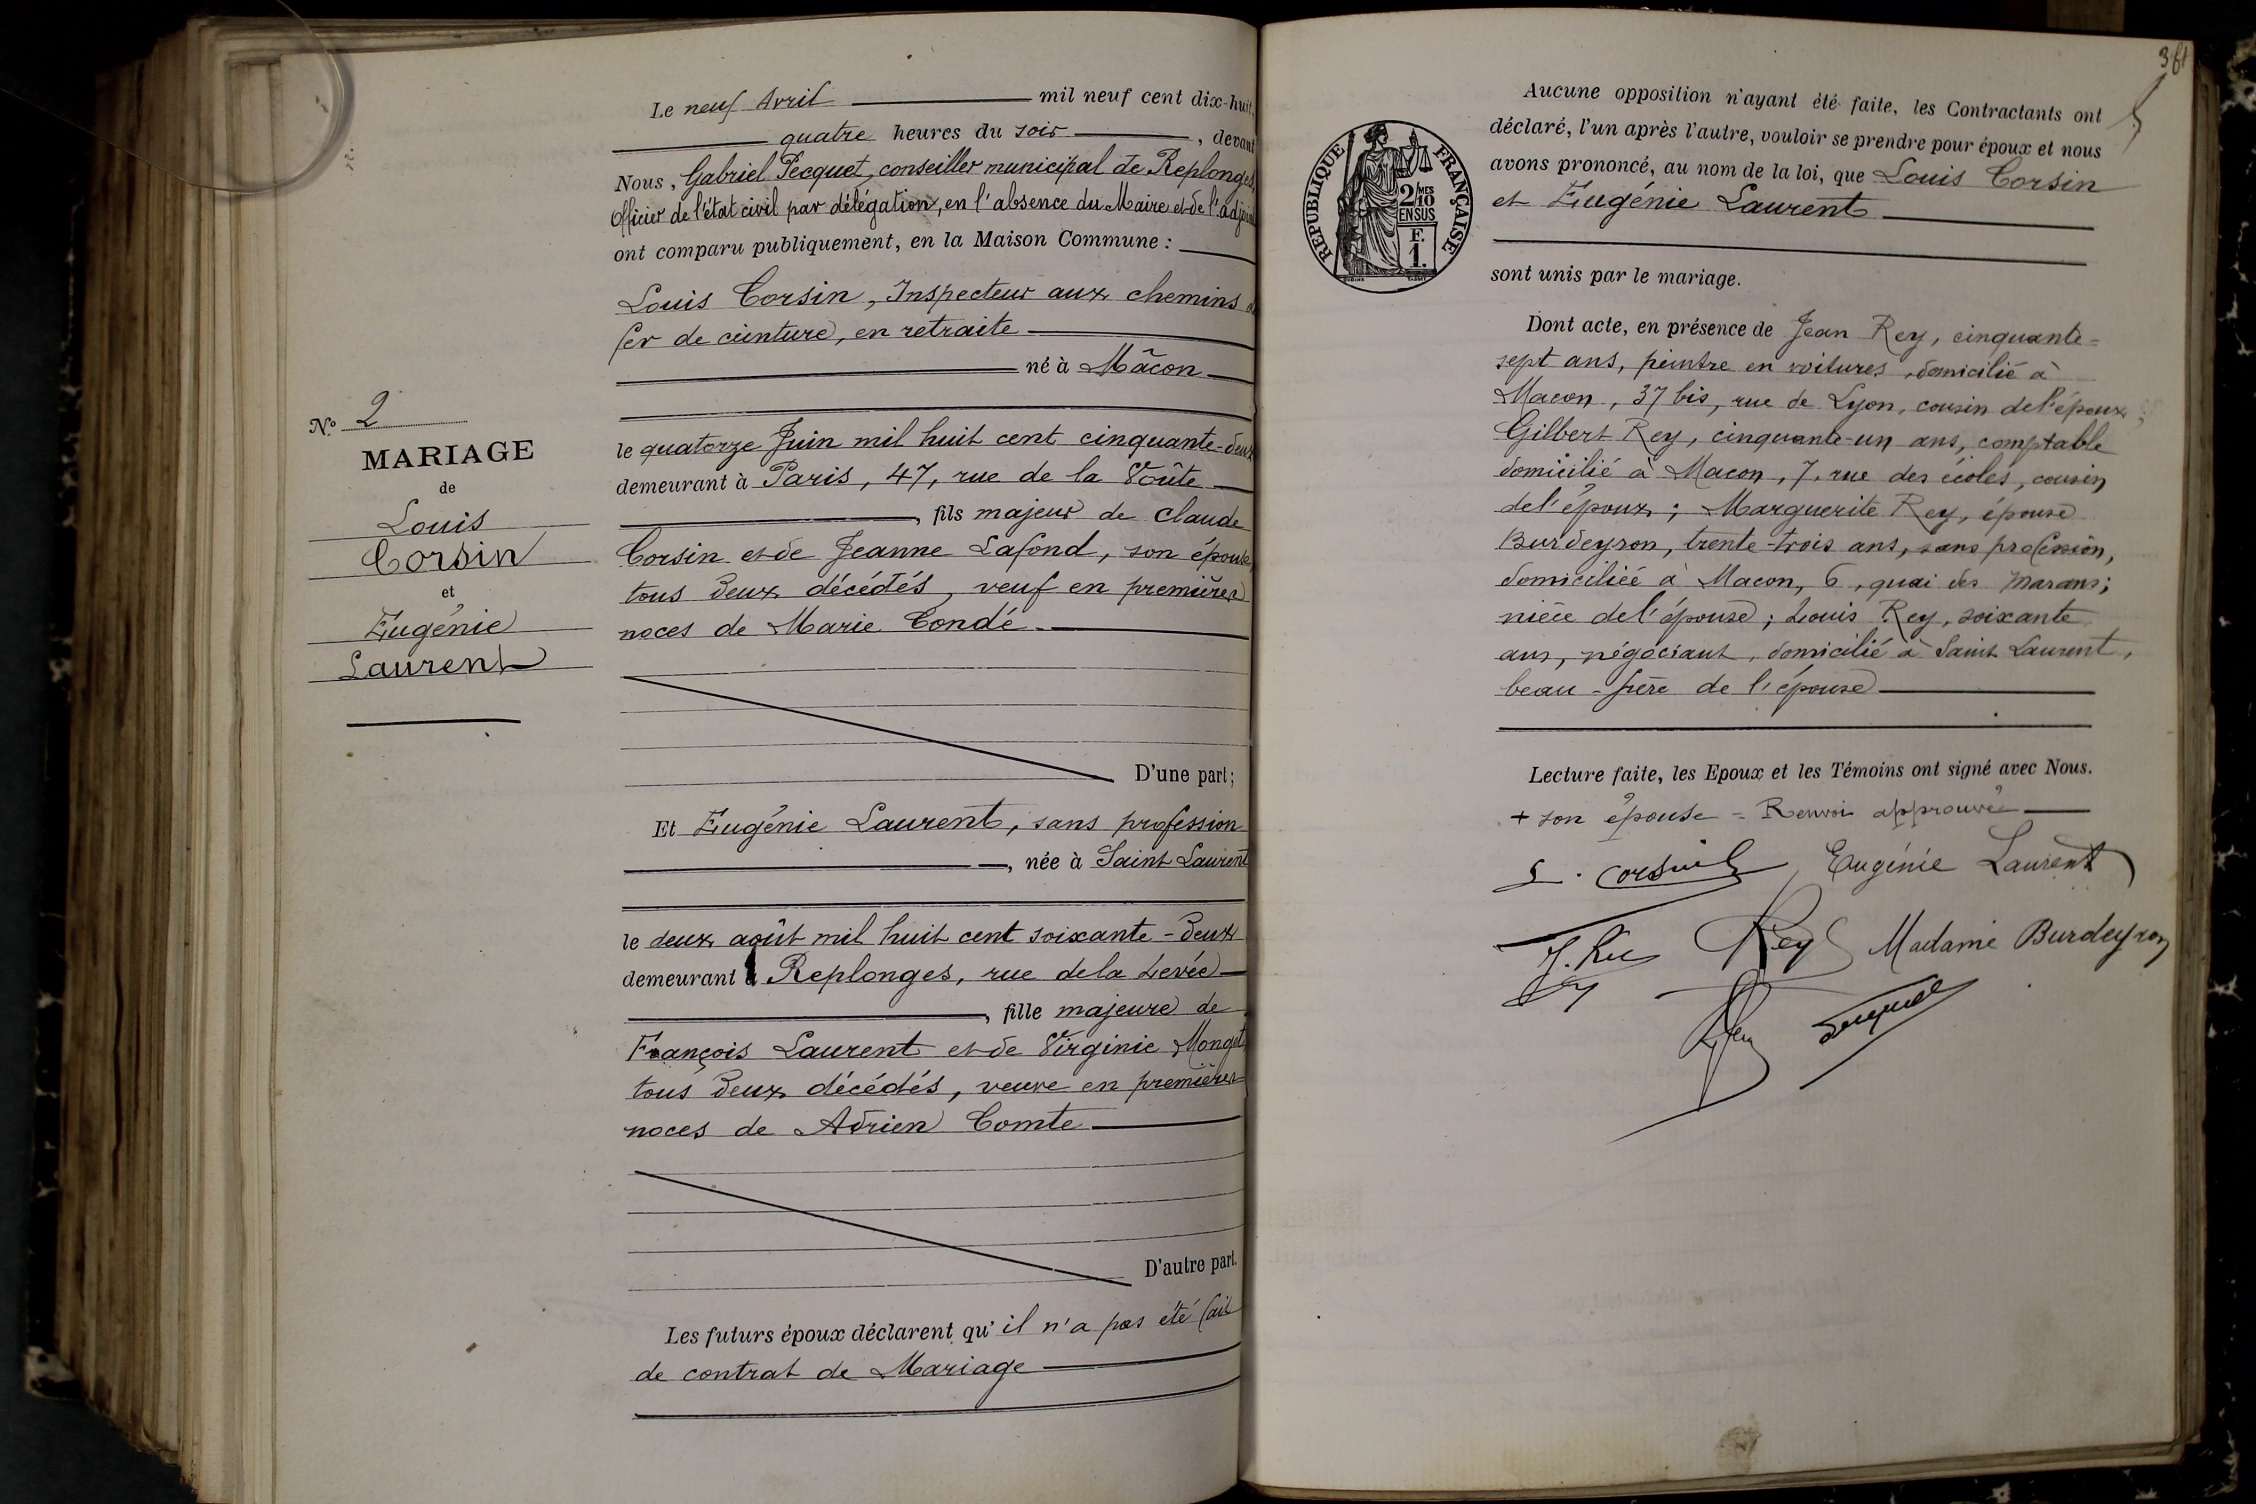 Le neuf Avril mil neuf cent dix-huit,
quatre heures du soir, devant
Nous, Gabriel Pecquet, conseiller municipal de Replonges,
Officier de l'état civil par délégation, en l'absence du Maire et de l'adjoint
ont comparu publiquement, en la Maison Commune :
Louis Corsin, Inspecteur aux chemins
fer de ceinture, en retraite
né à Mâcon
le quatorze Juin mil huit cent cinquante-deux
demeurant à Paris, 47, rue de la Voûte
, fils majeur de Claude
Corsin et de Jeanne Lafond, son épouse,
tous deux décédés, veuf en premières
noces de Marie Condé
D'une part;
Et Eugénie Laurent, sans profession
, née à Saint Laurent
le deux août mil huit cent soixante-deux
demeurant à Replonges, rue de la Levée
, fille majeure de
François Laurent et de Virginie
tous deux décédés, veuve en premières
noces de Adrien Comte
D'autre part.
Les futurs époux déclarent qu'il n'a pas été fait
de contrat de Mariage
No. 2
MARIAGE
de
Louis
Corsin
et
Eugénie
Laurent
Aucune opposition n'ayant été faite, les Contractants ont
déclaré, l'un après l'autre, vouloir se prendre pour époux et nous
avons prononcé, au nom de la loi, que Louis Corsin
et Eugénie Laurent
sont unis par le mariage.
RÉPUBLIQUE FRANÇAISE
2/10
MES
EN SUS
F.
1.
Dont acte, en présence de Jean Rey, cinquante-
sept ans, peintre en voitures, domicilié à
Macon, 37 bis, rue de Lyon, cousin de l'époux;
Gilbert Rey, cinquante-un ans, comptable
domicilié à Macon, 7, rue des écoles, cousin
de l'époux; Marguerite Rey, épouse
Burdeyron, trente-trois ans, sans profession,
domiciliée à Macon, 6, quai des Marans;
nièce de l'épouse; Louis Rey, soixante
ans, négociant, domicilié à Saint Laurent,
beau-frère de l'épouse
Lecture faite, les Epoux et les Témoins ont signé avec Nous.
+ son épouse = Renvoi approuvé
L. Corsin Eugénie Laurent
Rey Madame Burdeyron